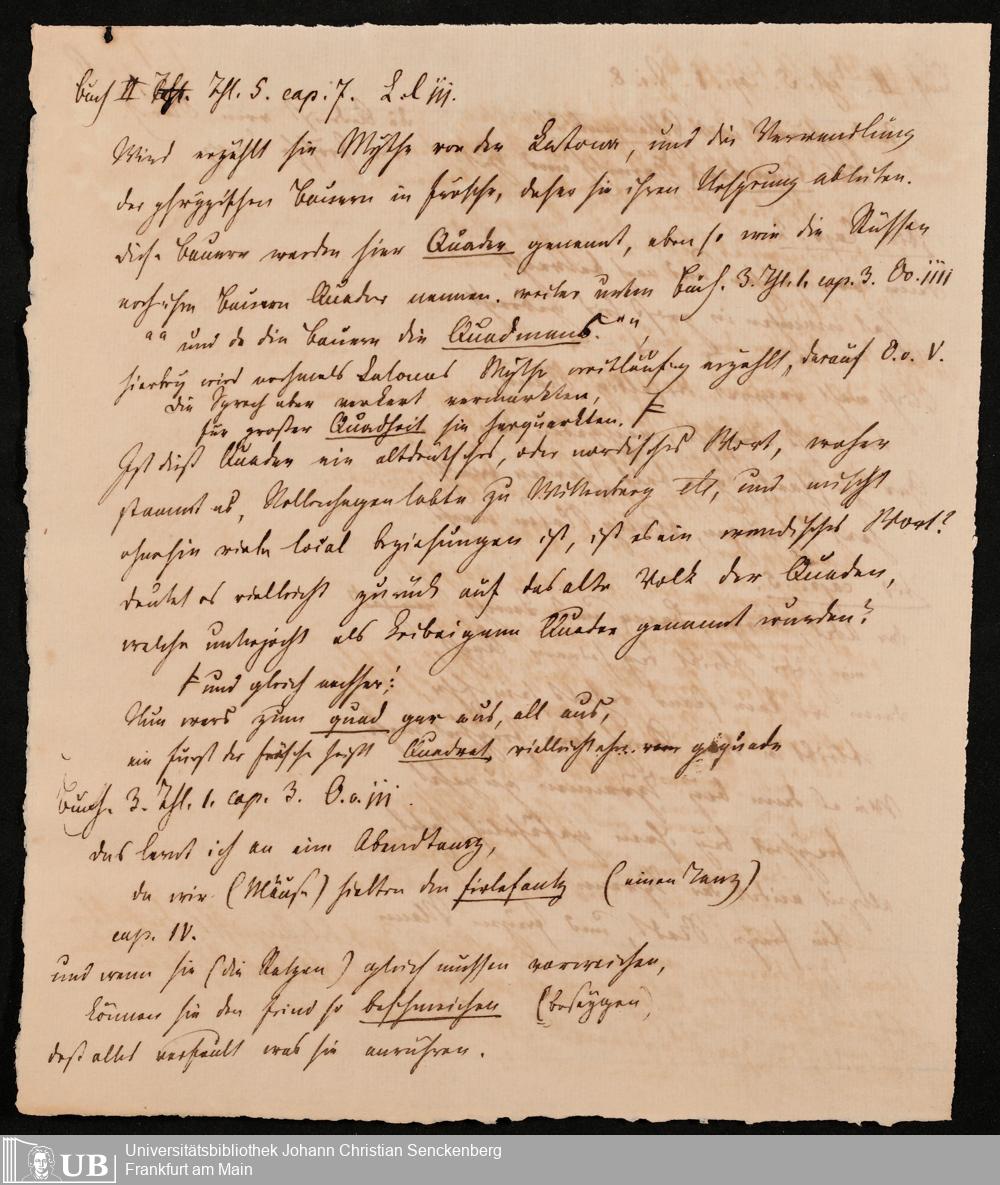 Buch II Thl. 5. cap. 7. L.l iij.
Wird erzählt die Mythe von der Latona, und die Verwandlung
der phrygischen Bauern in Frösche, daher sie ihren Ursprung ableiten.
diese Bauern werden hier Quaden genennt, eben so wie die Russen
noch ihre Bauern Quader nennen. weiter unten Buch. 3. Thl. 1. cap. 3. Oo. iiij
"" und da die Bauern die Quadmans.""
hierbey wird nochmals Latonas Mythe weitläufig erzählt, darauf O.o. V.
Die Sprach aber verkert vermarkten,
für großer Quadheit sie herquarkten.
Ist dieß Quaden ein altdeutsches, oder nordisches Wort, woher
stammt es, Rollenhagen lebte zu Wittenberg etc, und mischt
ohnehin viele local beziehungen ist, ist es ein wendisches Wort?
deutet es vielleicht zurück auf das alte Volk der Quaden,
welche unterjocht als Leibeigene Quaden genannt wurden?
und gleich nachher:
Nun wars zum quad gar aus, all aus,
ein fürst der frösche heißt Quadrat, vielleicht
Buch. 3. Thl. 1. cap. 3. O.o. iij.
das lernt ich an eim Abendtanz,
da wir (Mäuse) hielten den firlefantz (einen Tanz)
cap. IV.
und wenn sie (die Katzen) gleich mussen vorweichen,
können sie den feind so beschmeichen (beseygen)
daß alles verfault was sie anrühren.
Universitätsbibliothek Johann Christian Senckenberg
Frankfurt am Main
UB